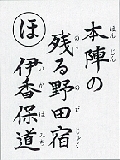 本陣の
残る野田宿
伊香保道
ほ